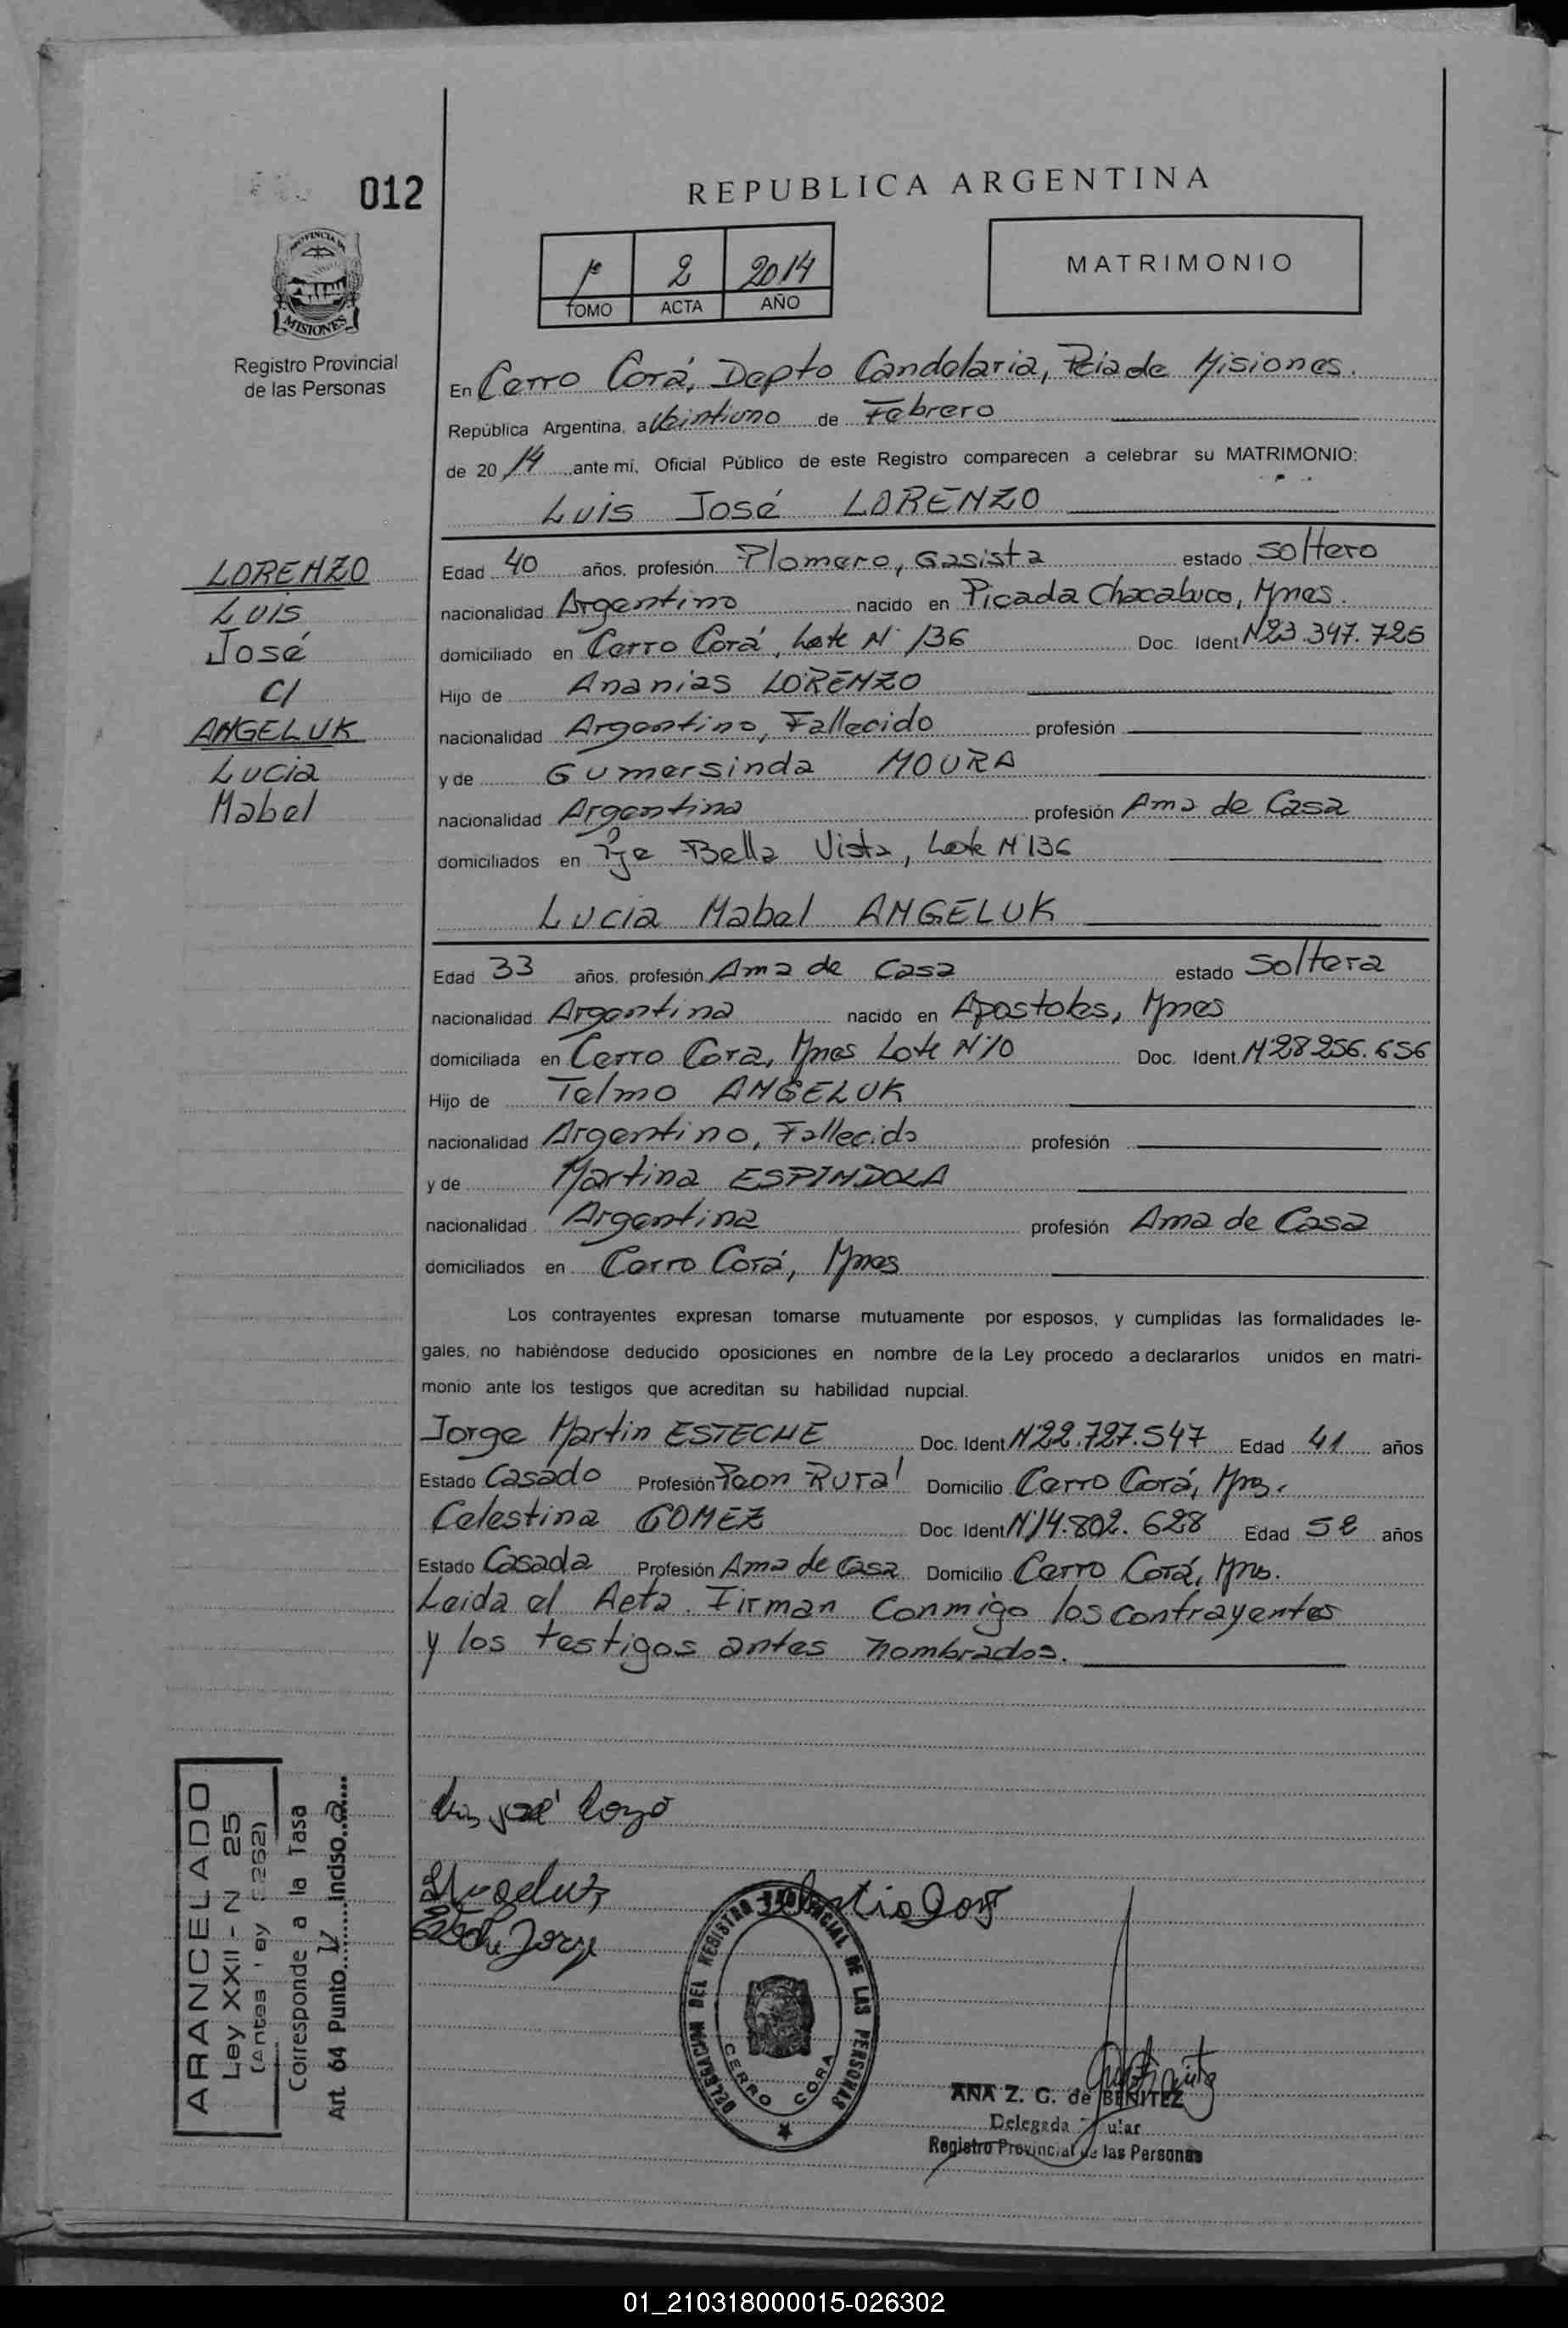 012
REPUBLICA ARGENTINA
PROVINCIA DE
MISIONES
Registro Provincial
de las Personas
1º 2 2014
TOMO ACTA AÑO
MATRIMONIO
En Cerro Corá, Depto Candelaria, Pcia de Misiones.
República Argentina, a Veintiuno de Febrero
de 2014 ante mi, Oficial Público de este Registro comparecen a celebrar su MATRIMONIO:
Luis José LORENZO
LORENZO
Luis
José
C/
ANGELUK
Lucia
Mabel
Edad 40 años, profesión Plomero, Gasista estado Soltero
nacionalidad Argentino nacido en Picada Chacabuco, Mnes.
domiciliado en Cerro Corá, Lote Nº 136 Doc. Ident Nº23.347.725
Hijo de Ananias LORENZO
nacionalidad Argentino, Fallecido profesión
y de Gumersinda MOURA
nacionalidad Argentina profesión Ama de Casa
domiciliados en Pje Bella Vista, Lote Nº136
Lucia Mabel ANGELUK
Edad 33 años, profesión Ama de Casa estado Soltera
nacionalidad Argentina nacido en Apostoles, Mnes
domiciliada en Cerro Cora, Mnes Lote Nº10 Doc. Ident. Nº28256.656
Hijo de Telmo ANGELUK
nacionalidad Argentino, Fallecido profesión
y de Martina ESPINDOLA
nacionalidad Argentina profesión Ama de Casa
domiciliados en Cerro Corá, Mnes
Los contrayentes expresan tomarse mutuamente por esposos, y cumplidas las formalidades le-
gales, no habiéndose deducido oposiciones en nombre de la Ley procedo a declararlos unidos en matri-
monio ante los testigos que acreditan su habilidad nupcial.
Jorge Martin ESTECHE Doc. Ident Nº22.727.547 Edad 41 años
Estado Casado Profesión Peon Rural Domicilio Cerro Corá, Mns.
Celestina GOMEZ Doc. Ident Nº14.802.628 Edad 52 años
Estado Casada Profesión Ama de Casa Domicilio Cerro Corá, Mns.
Leida el Acta. Firman Conmigo los contrayentes
y los testigos antes nombrados.
ARANCELADO
Ley XXII - N 25
(Antes Ley 3262)
Corresponde a la Tasa
Art. 64 Punto V Inciso a
Luis José
Jorge
DELEGACION DEL REGISTRO PROVINCIAL DE LAS PERSONAS
CERRO CORA
ANA Z. G. de BENITEZ
Delegada Titular
Registro Provincial de las Personas
01_210318000015-026302